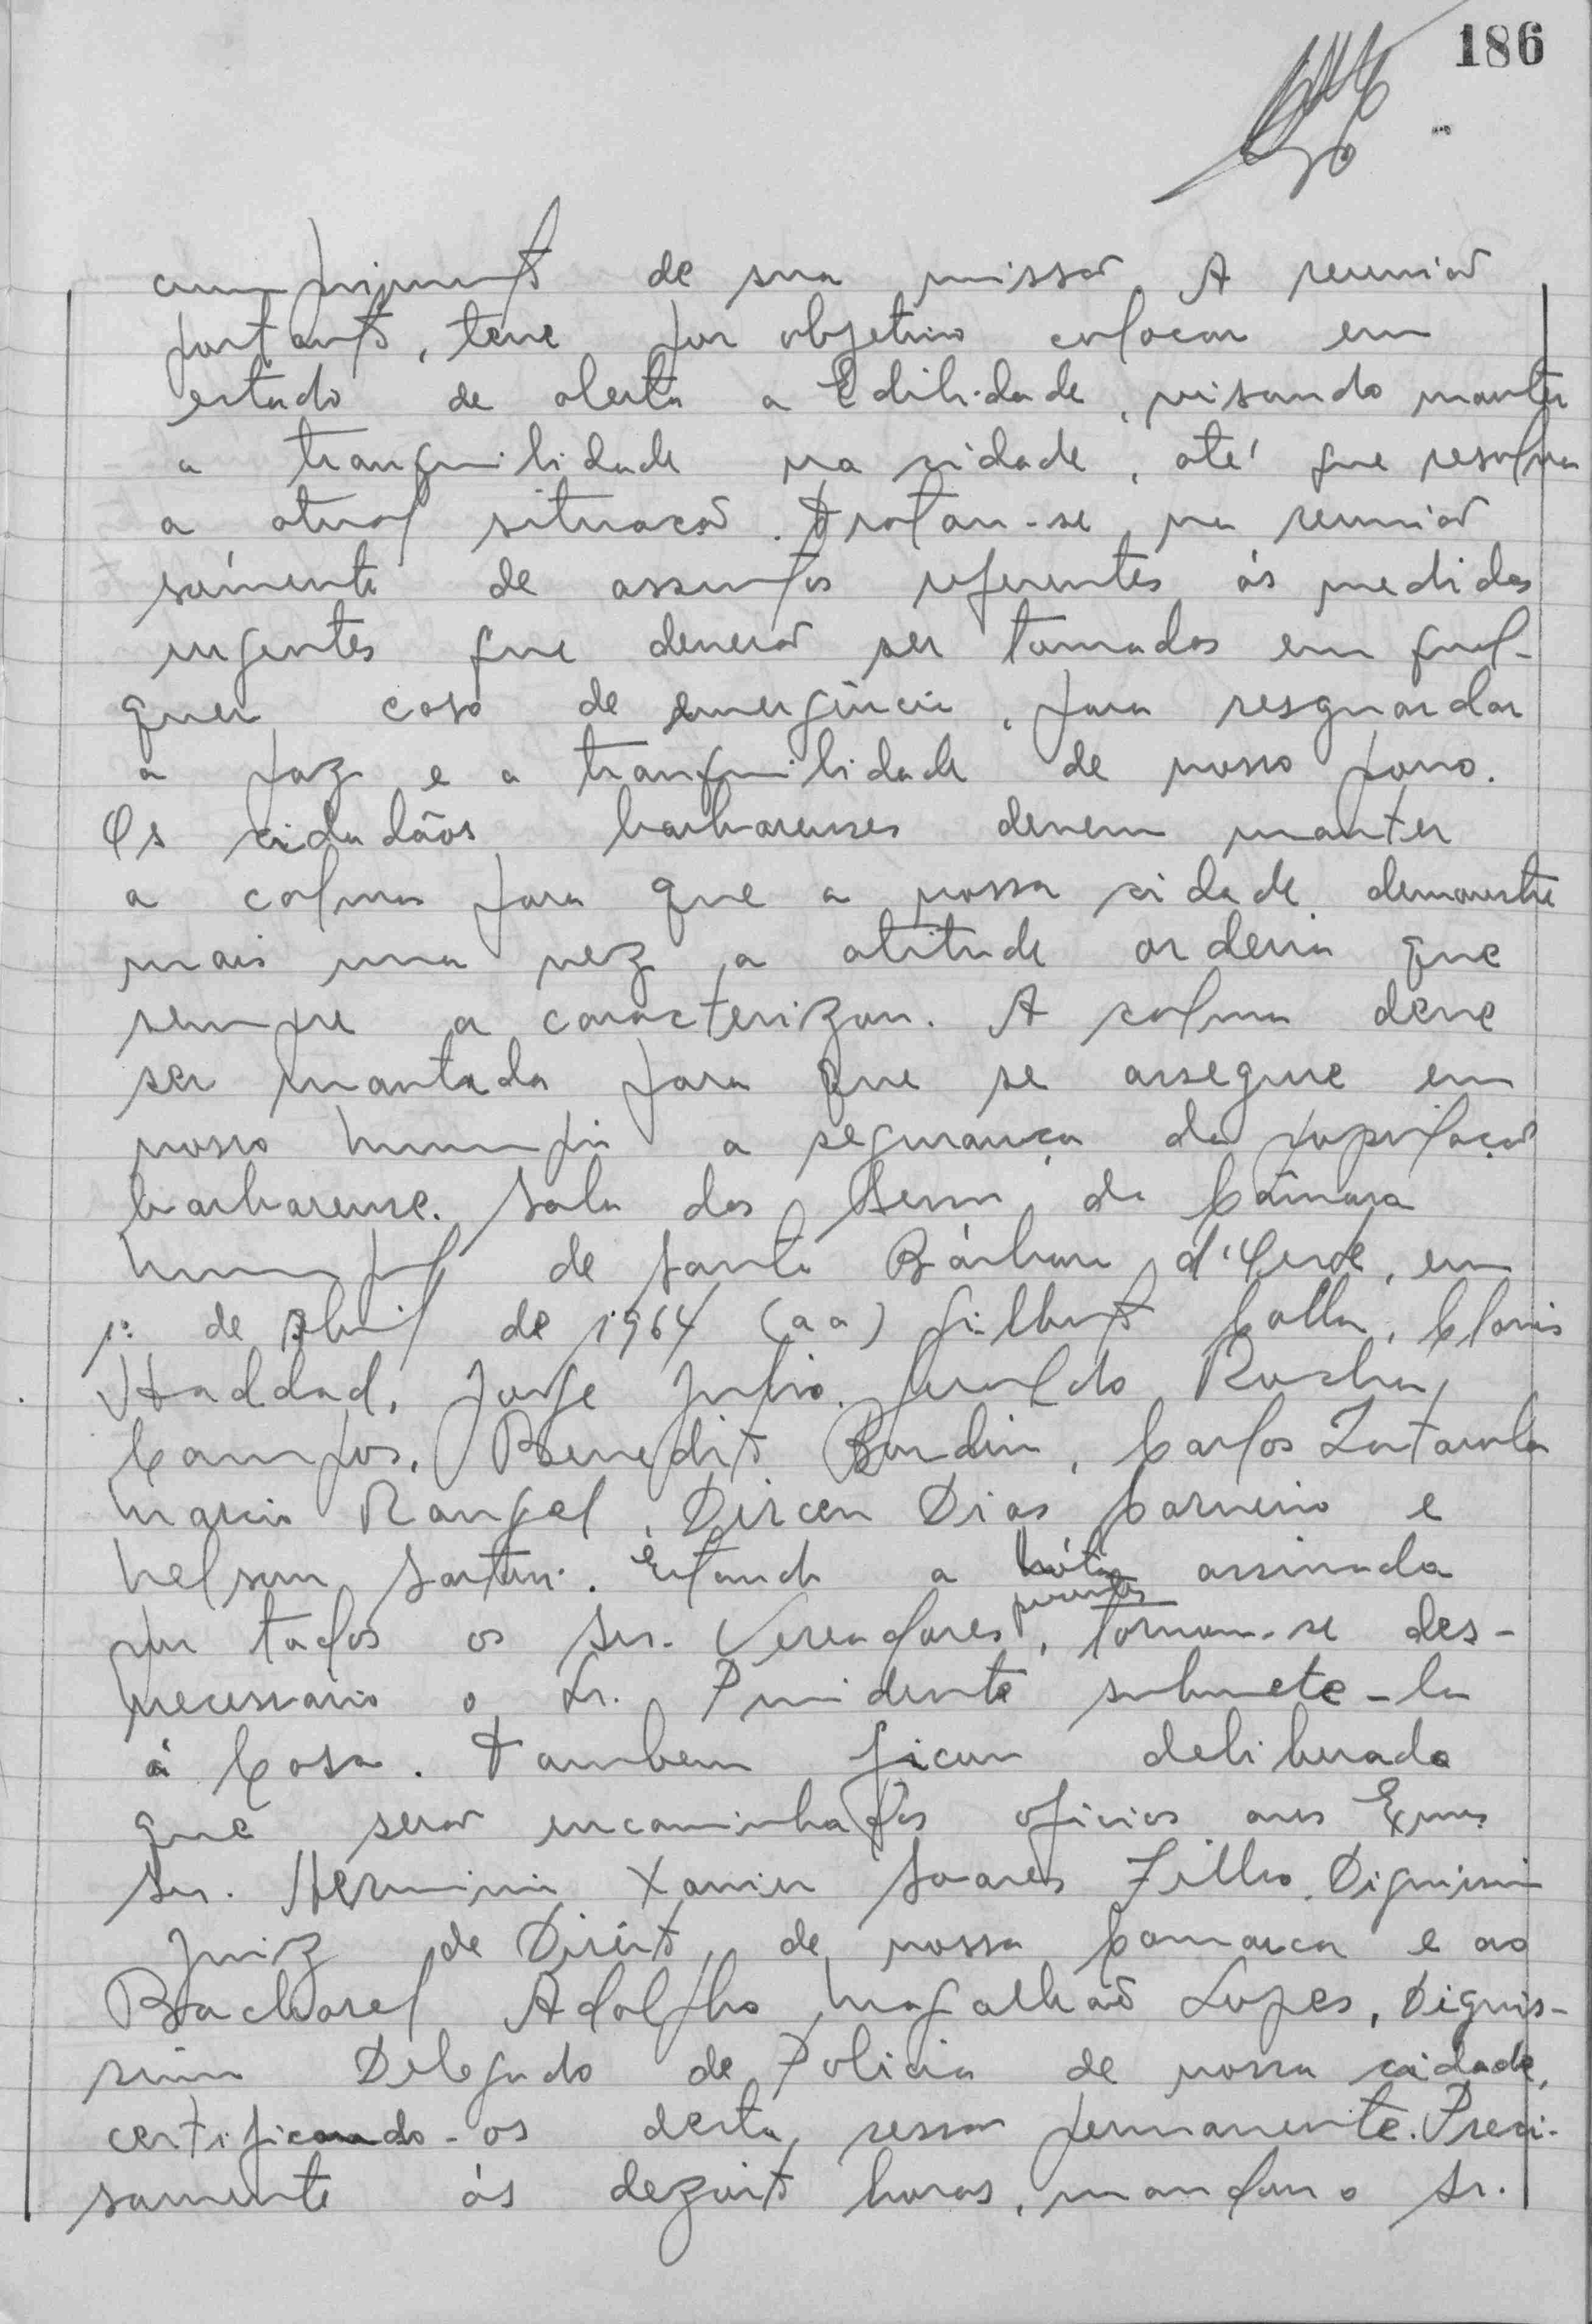 186
cumprimento de sua missão A reunião
portanto, teve por objetivo colocar em
estado de alerta a Edilidade, visando manter
a tranquilidade na cidade, até que resolva
a atual situação. Tratou-se na reunião
sómente de assuntos referentes ás medidas
urgentes que deverão ser tomadas em qual-
quer caso de emergência, para resguardar
a paz e a tranquilidade de nosso povo.
Os cidadãos barbarenses devem manter
a calma para que a nossa cidade demonstre
mais uma vez a atitude ordeira que
sempre a caracterizou. A calma deve
ser mantida para que se assegure em
nosso Município a segurança da população
barbarense. Sala das Sessões da Câmara
Municipal de Santa Bárbara d'Oeste, em
1º de Abril de 1964 (aa) Gilberto Calla, Clovis
Haddad, Jorge Julio, Geraldo Rocha
Campos, Benedito Bordin, Carlos
Marcio Rangel, Dirceu Dias Carneiro e
Nelson Sartori. Estando a assinada
presentes
por todos os Srs. Vereadores, tornou-se des-
necessario o Sr. Presidente submete-la
á Casa. Tambem ficou deliberado
que serão encaminhados oficios aos Exmos
Srs. Herminio Xavier Soares Filho, Dignissimo
Juiz de Direito de nossa Comarca e ao
Bacharel Adolpho Magalhães Lopes, Dignis-
simo Delegado de Policia de nossa cidade,
certificando-os desta sessão permanente. Preci-
samente ás dezoito horas, mandou o Sr.